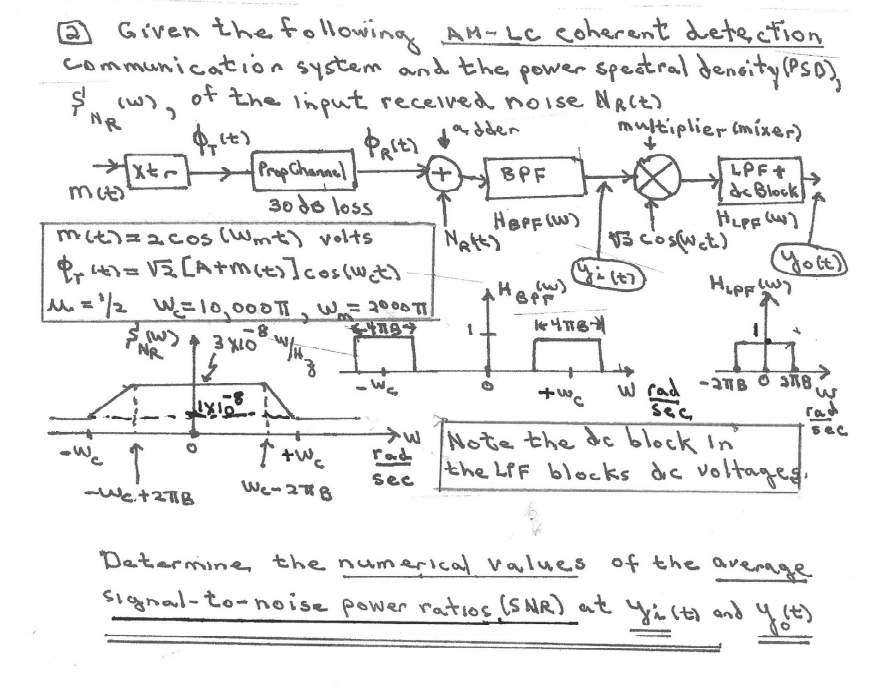 2 Given the following AM-LC coherent detection
communication system and the power spectral density (PSD),
S_NR(w), of the input received noise N_R(t)
ϕ_T(t) ϕ_R(t) adder multiplier (mixer)
m(t) Xtr Prop Channel + BPF × LPF + dc Block
30 dB loss
N_R(t) H_BPF(w) y_i(t) √3 cos(w_c t) H_LPF(w) y_o(t)
m(t) = 2 cos(w_m t) volts
ϕ_T(t) = √2 [A+m(t)] cos(w_c t)
μ = 1/2 w_c = 10,000π, w_m = 2000π
S_NR(w) 3×10^-8 W/Hz
1×10^-8
-w_c 0 +w_c w rad/sec
-w_c+2πB w_c-2πB
H_BPF(w)
4πB 1 4πB
-w_c 0 +w_c w rad/sec
H_LPF(w)
1
-2πB 0 2πB w rad/sec
Note the dc block in
the LPF blocks dc voltages.
Determine the numerical values of the average
signal-to-noise power ratios (SNR) at y_i(t) and y_o(t)